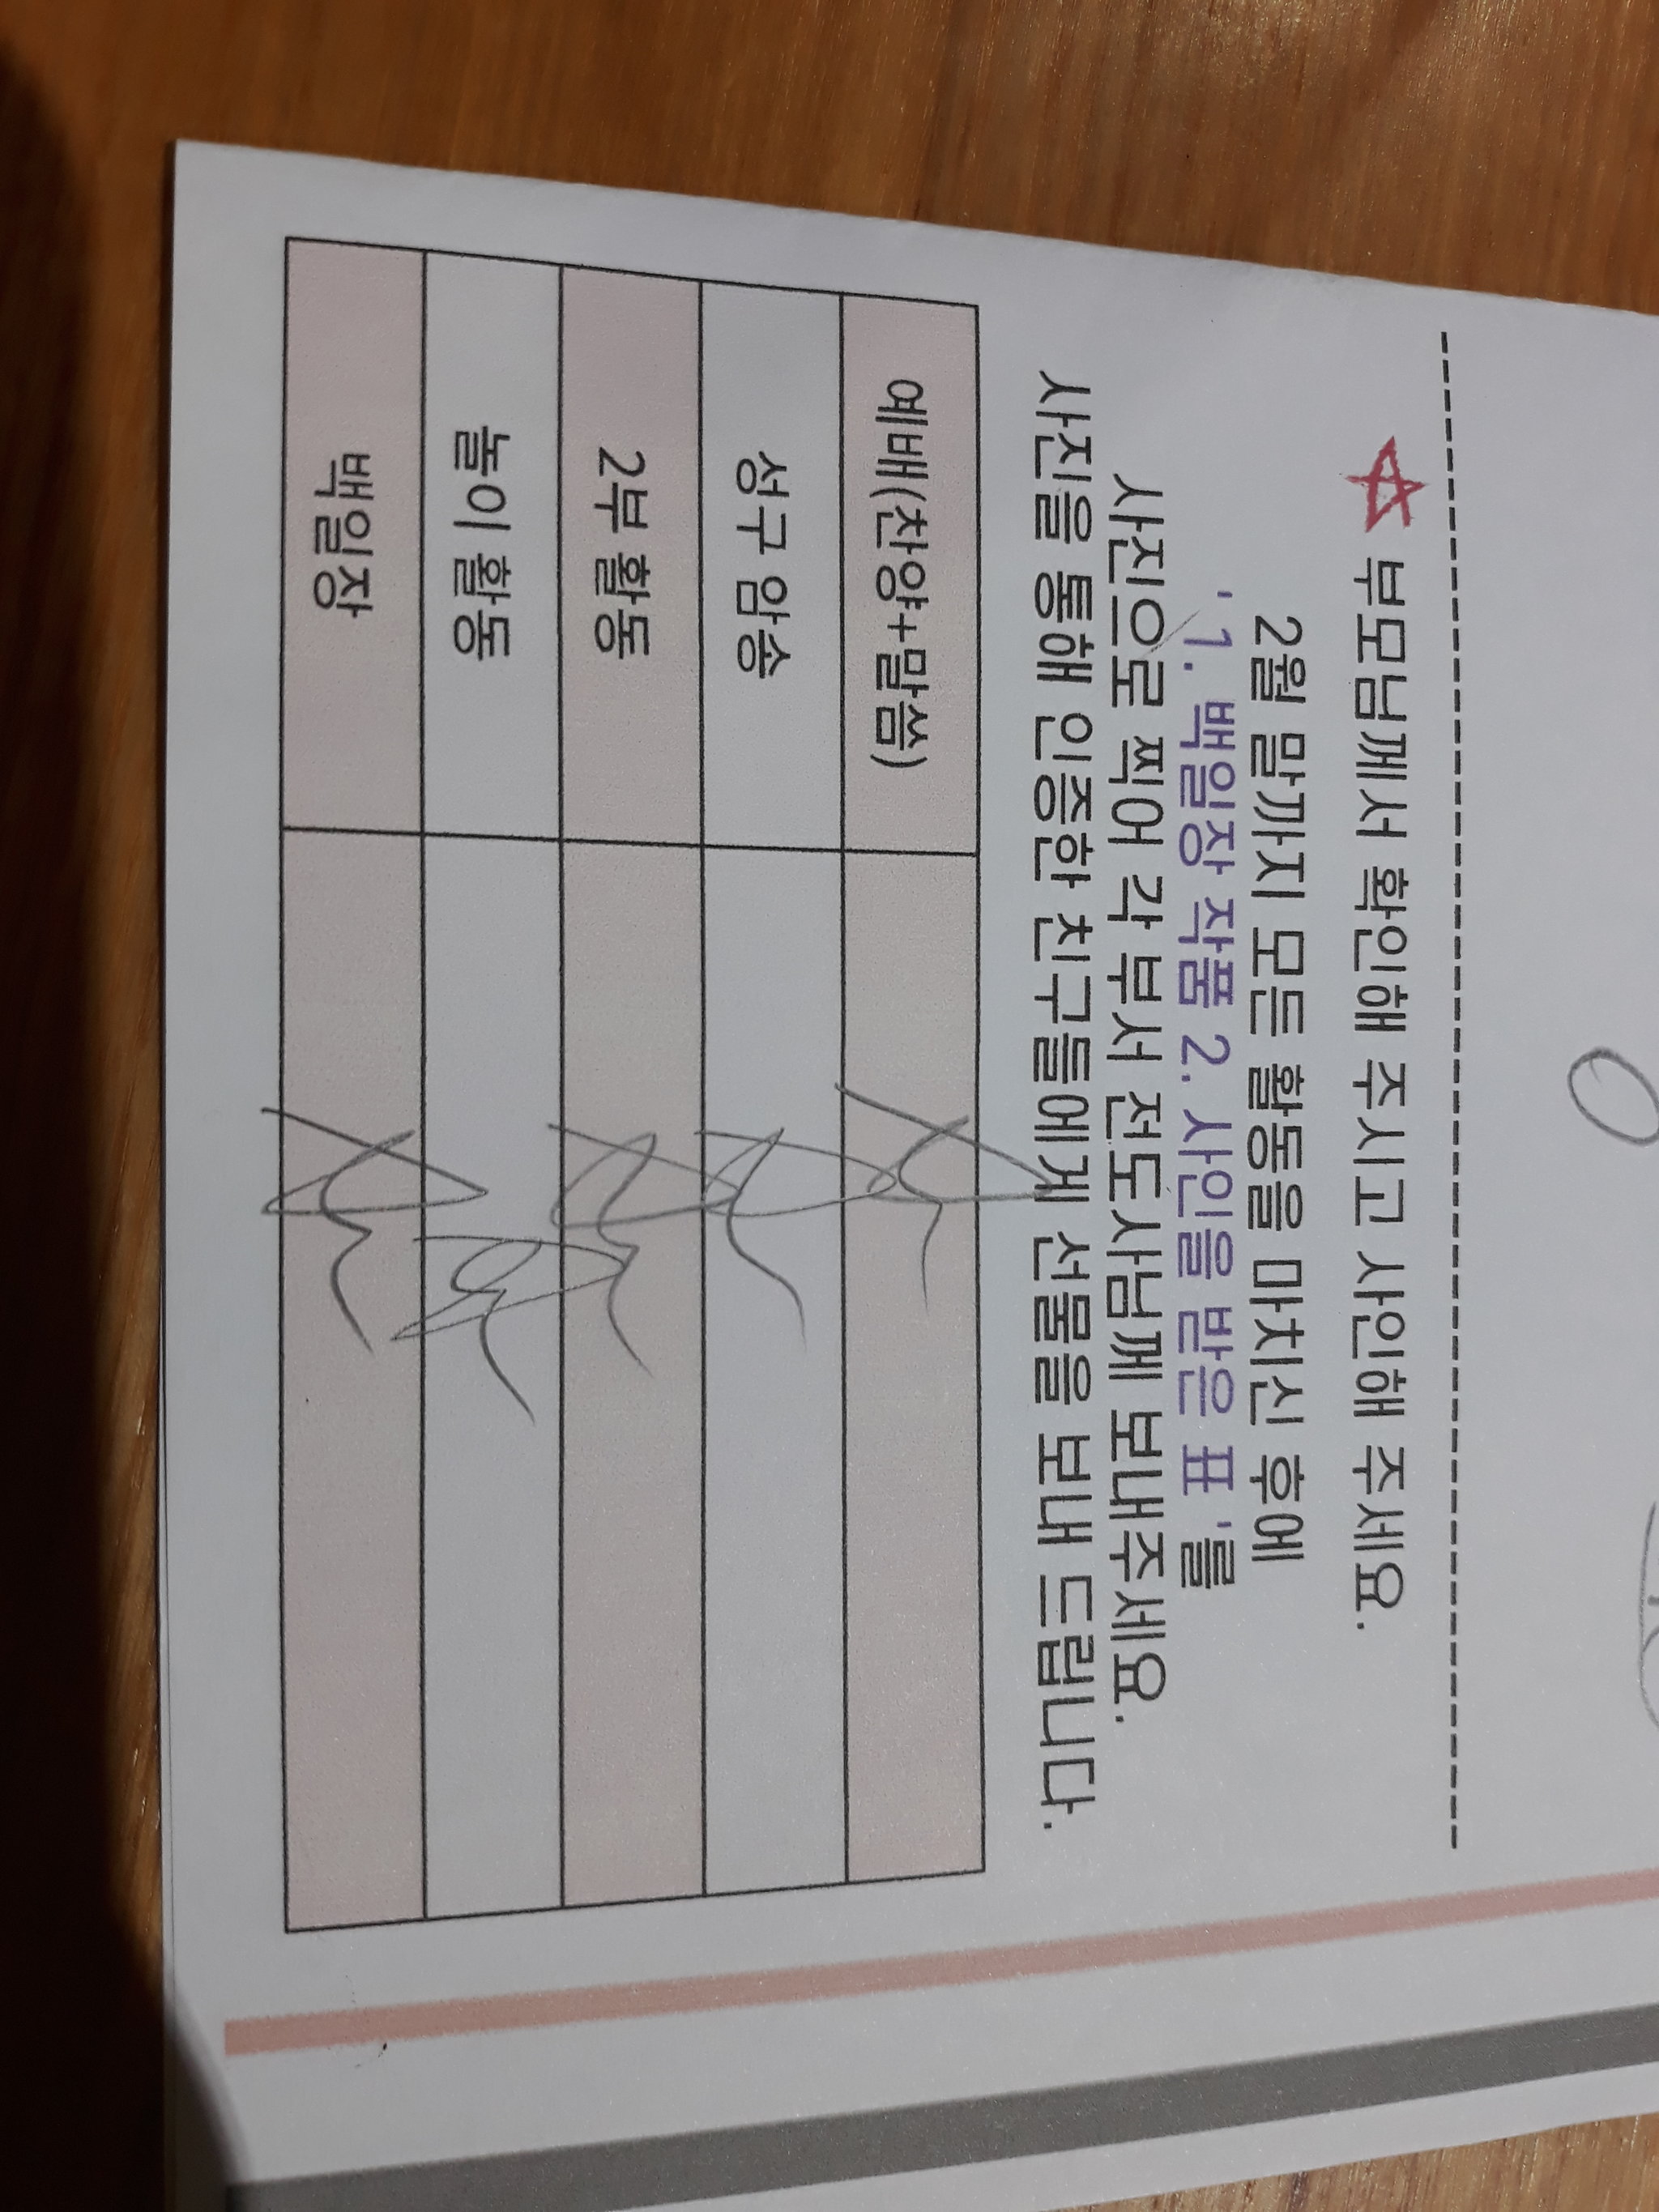 부모님께서 확인해 주시고 사인해 주세요.
2월 말까지 모든 활동을 마치신 후에
' 1. 백일장 작품 2. 사인을 받은 표 '를
사진으로 찍어 각 부서 전도사님께 보내주세요.
사진을 통해 인증한 친구들에게 선물을 보내 드립니다.
예배(찬양+말씀)
성구 암송
2부 활동
놀이 활동
백일장